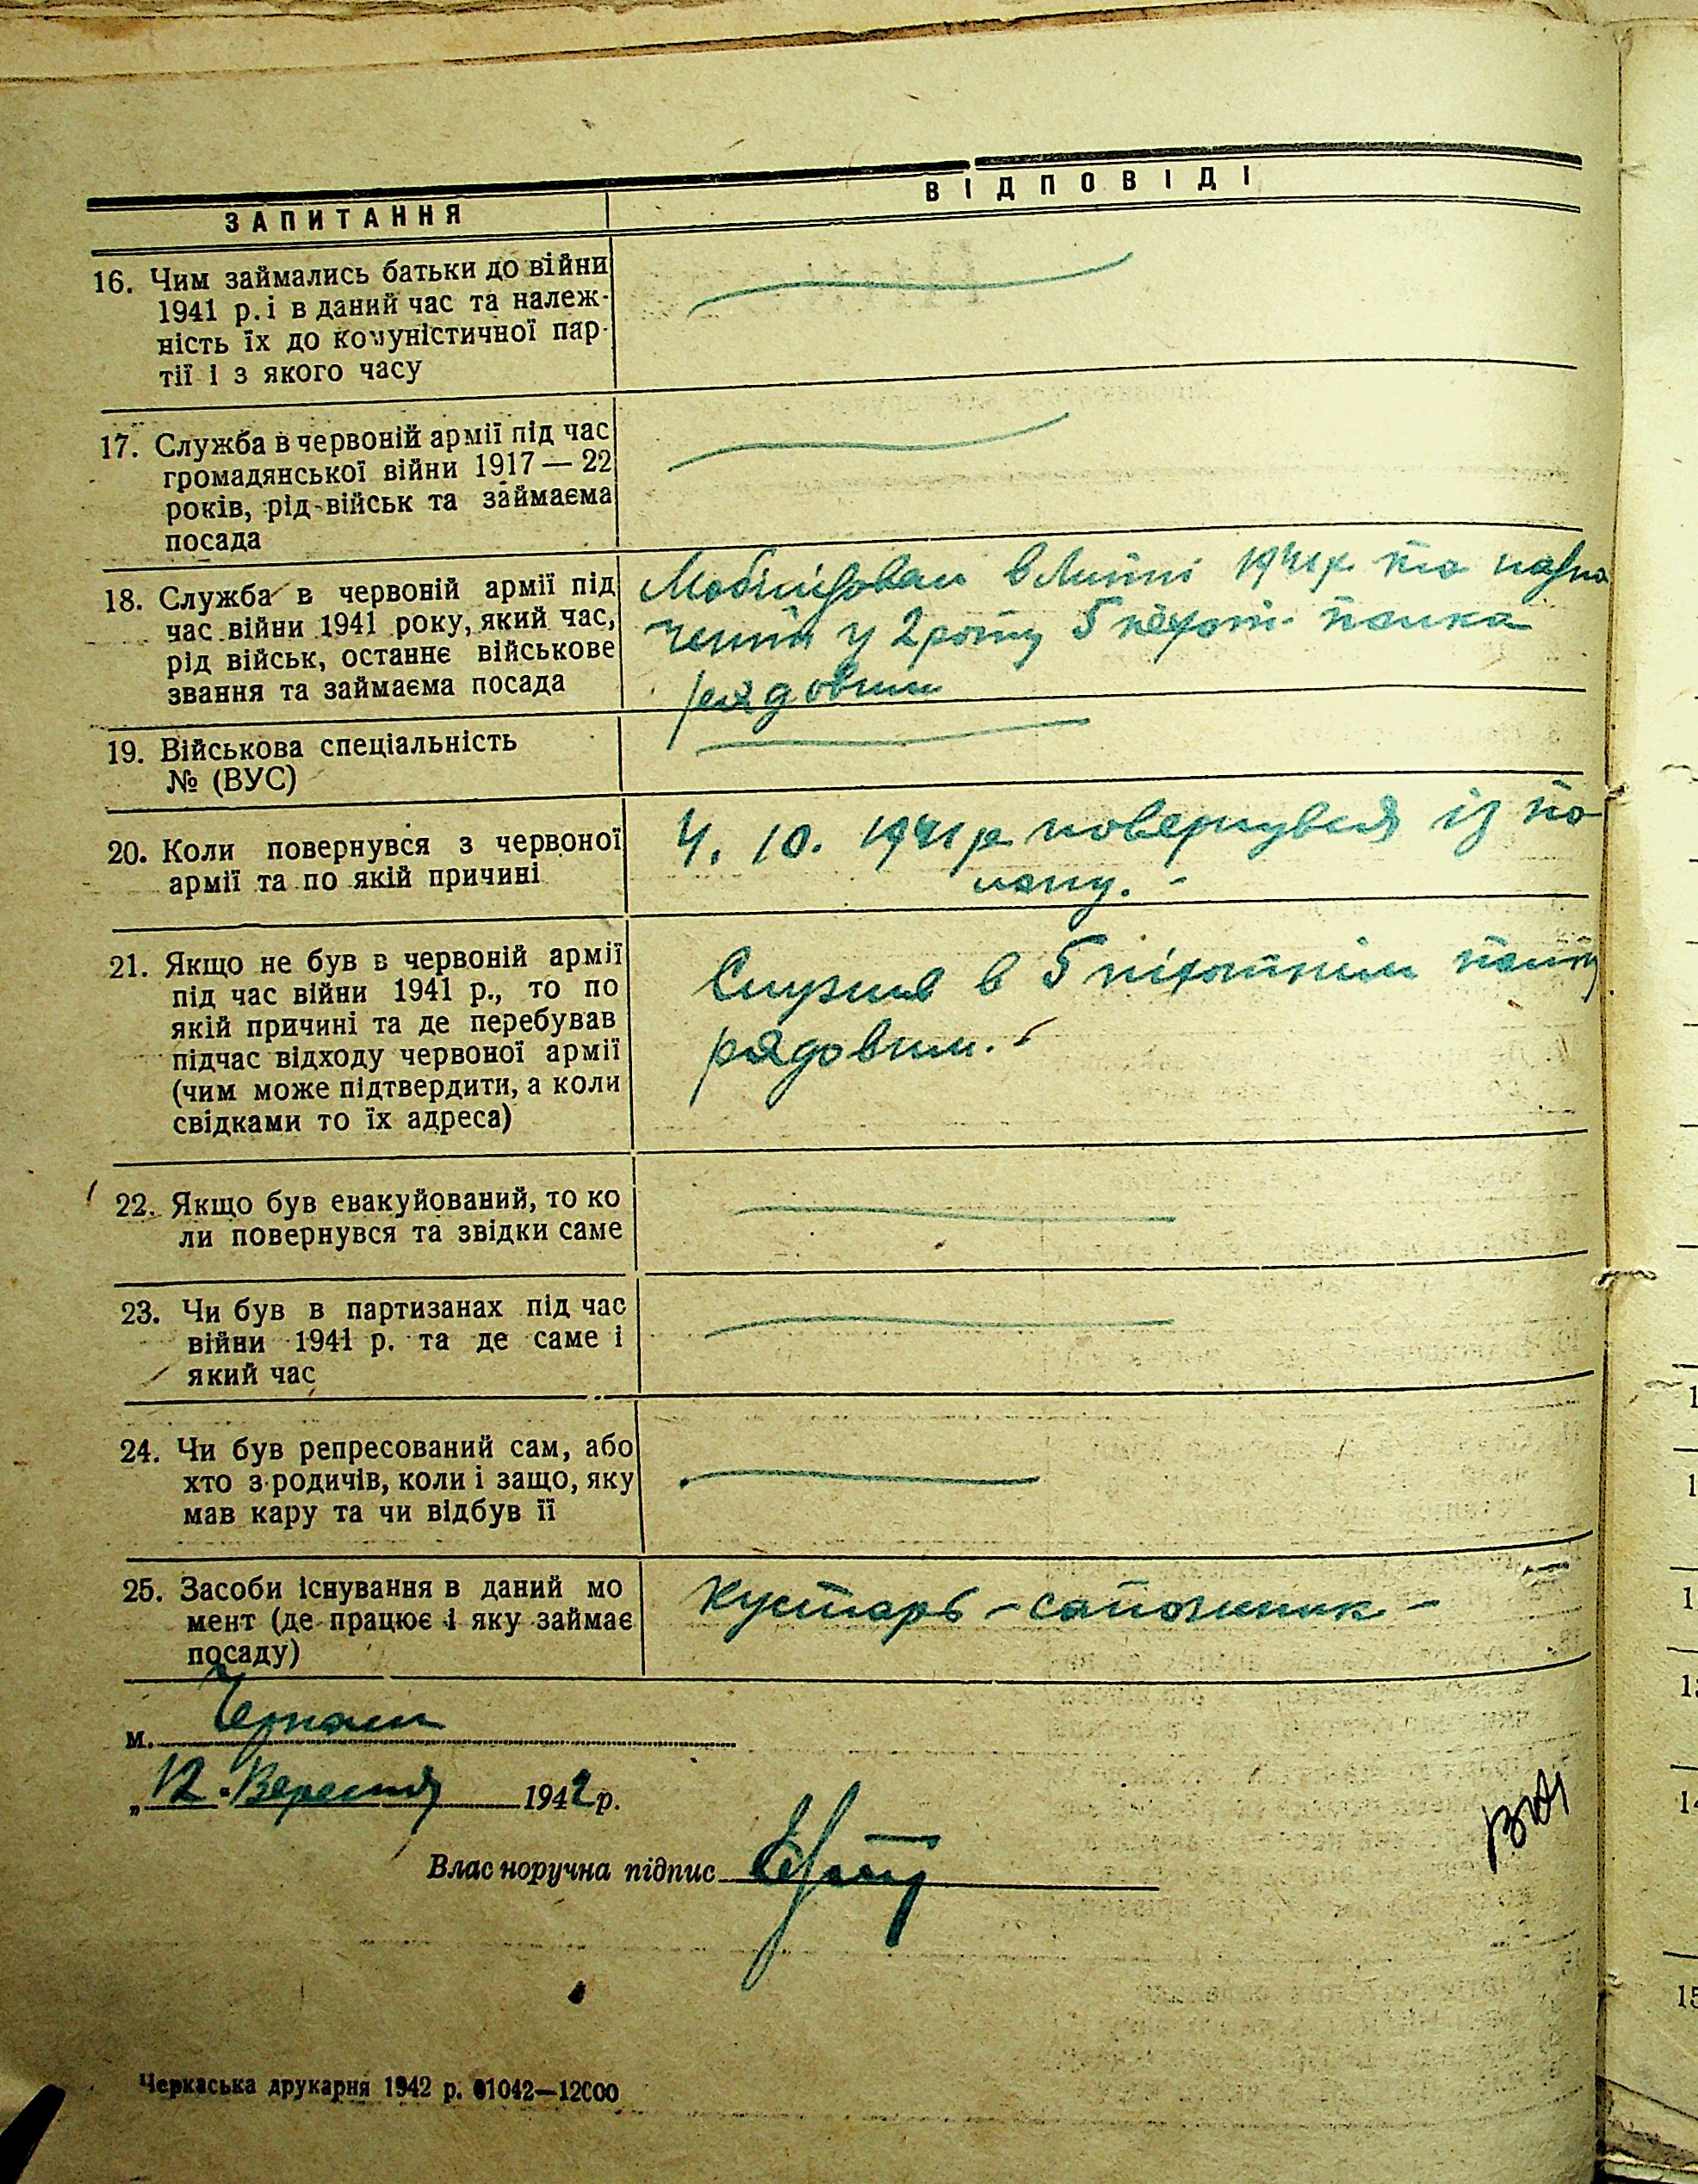 ЗАПИТАННЯ
ВІДПОВІДІ
16. Чим займались батьки до війни
1941 р. і в даний час та належ-
ність їх до комуністичної пар-
тії і з якого часу
17. Служба в червоній армії під час
громадянської війни 1917 — 22
років, рід військ та займаєма
посада
18. Служба в червоній армії під
час війни 1941 року, який час,
рід військ, останнє військове
звання та займаєма посада
Мобілізован в Липні 1941 р. та назна
чений у 2 роту 5 піхотн. полка
рядовим
19. Військова спеціальність
№ (ВУС)
20. Коли повернувся з червоної
армії та по якій причині
4. 10. 1941 р. повернувся із по
лону. -
21. Якщо не був в червоній армії
під час війни 1941 р., то по
якій причині та де перебував
підчас відходу червоної армії
(чим може підтвердити, а коли
свідками то їх адреса)
Служив в 5 піхотнім полку
рядовим. -
22. Якщо був евакуйований, то ко
ли повернувся та звідки саме
23. Чи був в партизанах під час
війни 1941 р. та де саме і
який час
24. Чи був репресований сам, або
хто з родичів, коли і защо, яку
мав кару та чи відбув її
25. Засоби існування в даний мо
мент (де працює і яку займає
посаду)
Кустарь - сапожник -
м. Черкаси
„12" Вересня 1942 р.
Власноручна підпис
Черкаська друкарня 1942 р. 01042—12000